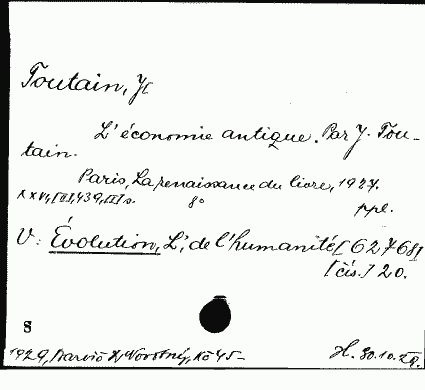 Toutain, J[
L'économie antique. Par J. Tou-
tain.
Paris, La renaissance du livre, 1927.
XXVI, [III], 439, [II] s. 8° ppl.
V: Évolution, L', de l'humanité [62768]
[čís.] 20.
S
1929, Novotný, Kč 45-
H. 30.10.